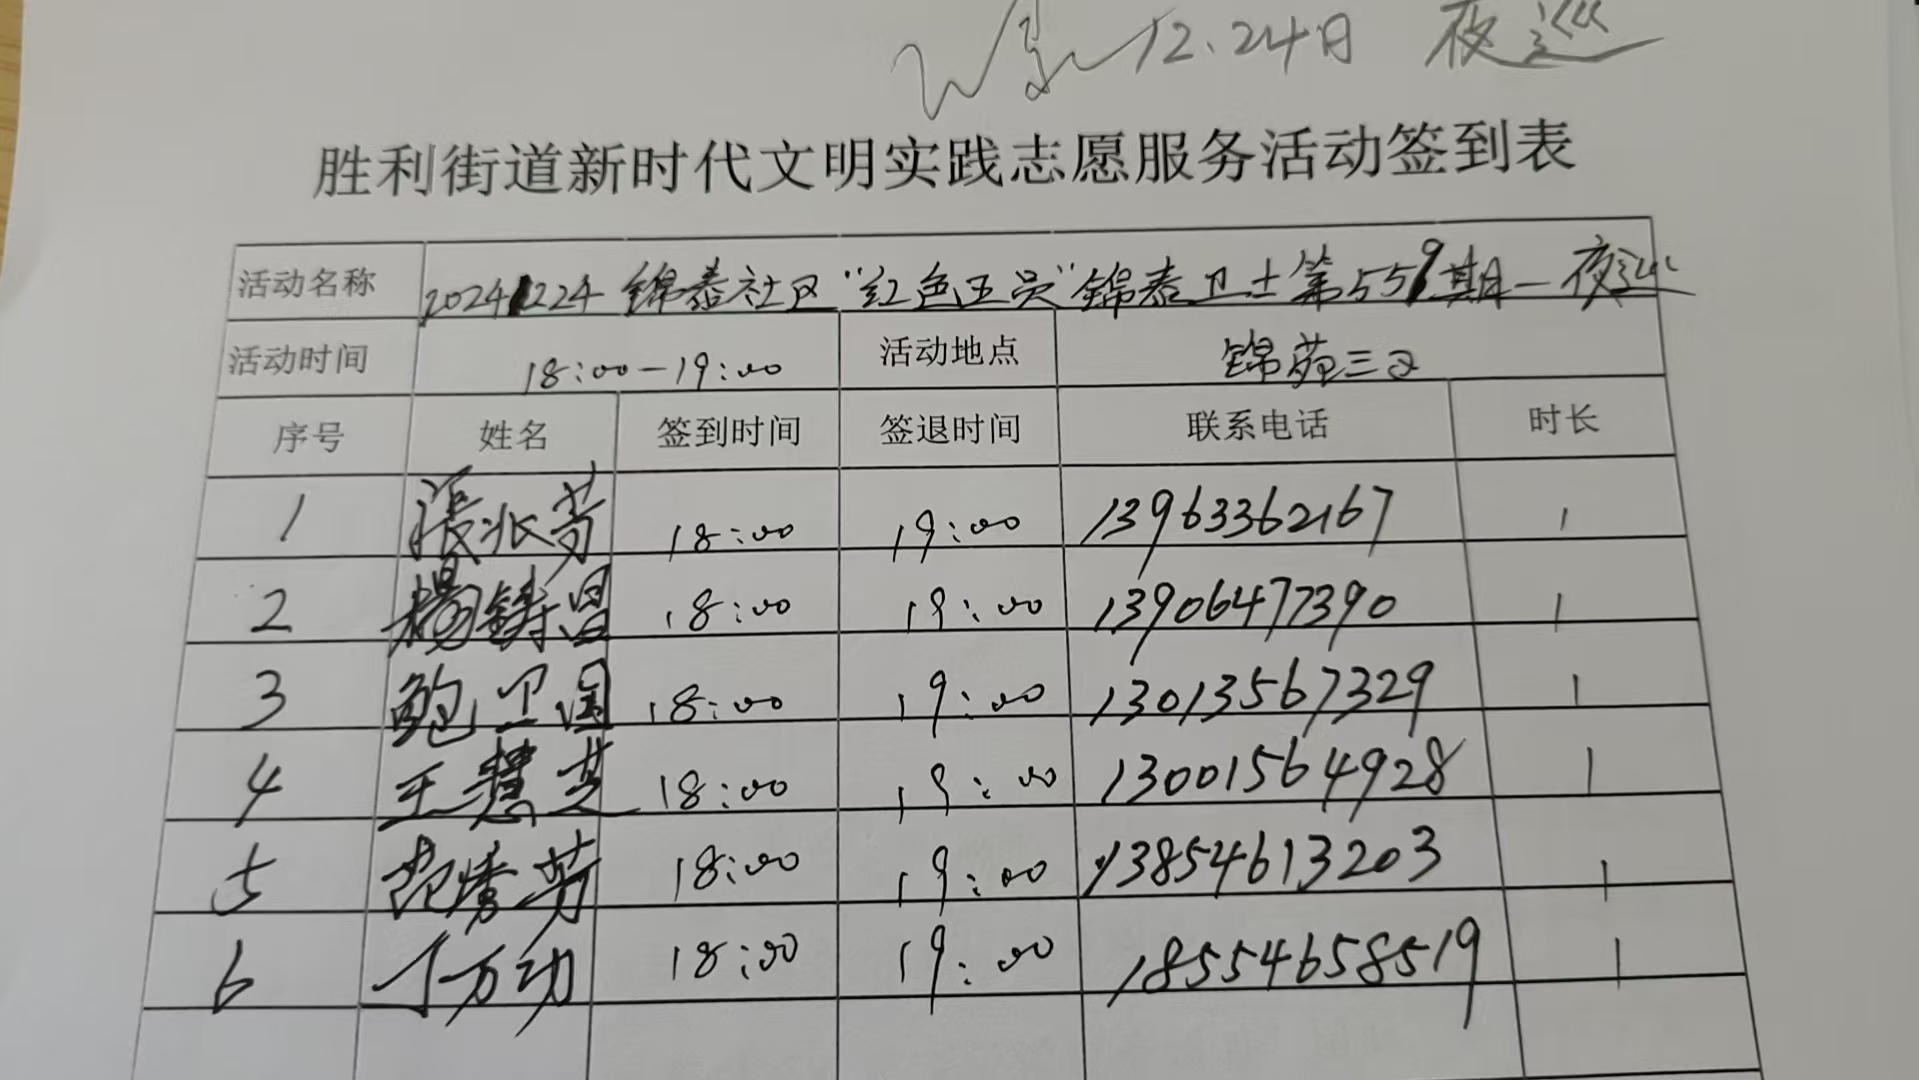 12.24日 夜巡
胜利街道新时代文明实践志愿服务活动签到表
活动名称 20241224 锦泰社区“红色五员”锦泰卫士第559期—夜巡
活动时间 18:00—19:00 活动地点 锦苑三区
序号 姓名 签到时间 签退时间 联系电话 时长
1 張兆芳 18:00 19:00 13963362167 1
2 楊鋳昌 18:00 19:00 13906477390 1
3 鲍卫国 18:00 19:00 13013567329 1
4 王慧芝 18:00 19:00 13001564928 1
5 范秀芳 18:00 19:00 13854613203 1
6 丁万动 18:00 19:00 18554658519 1